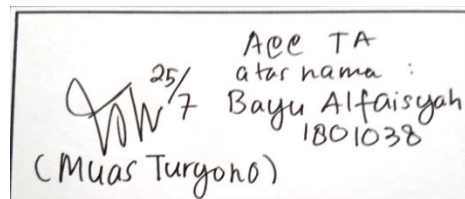 Acc TA
atas nama :
25/7
Bayu Alfaisyah
1801038
(Muas Turyono)